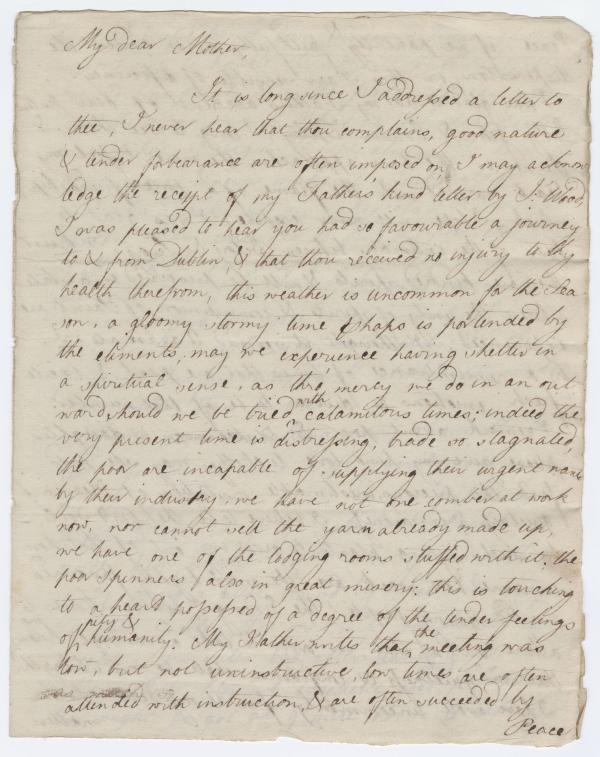 My dear Mother,
It is long since I addressed a letter to
thee, I never hear that thou complains, good nature
& tender forbearance are often imposed on, I may acknow
ledge the receipt of my Fathers kind letter by J: Wood,
I was pleased to hear you had so favourable a journey
to & from Dublin, & that thou received no injury to thy
health therefrom, this weather is uncommon for the Sea
son, a gloomy stormy time phaps is portended by
the eliments, may we experience having shelter in
a spiritual sense, as thro' mercy we do in an out
ward, should we be tried with calamitous times; indeed the
very present time is distressing, trade so stagnated,
the poor are incapable of supplying their urgent wants
by their industry. we have not one comber at work
now, nor cannot sell the yarn already made up,
we have one of the lodging rooms stuffed with it. the
poor spinners also in great misery: this is touching
to a heart possessed of a degree of the tender feelings
of pity & humanity. My Father writes that the meeting was
low, but not uninstructive, low times are often
attended with instruction, & are often succeeded by
Peace